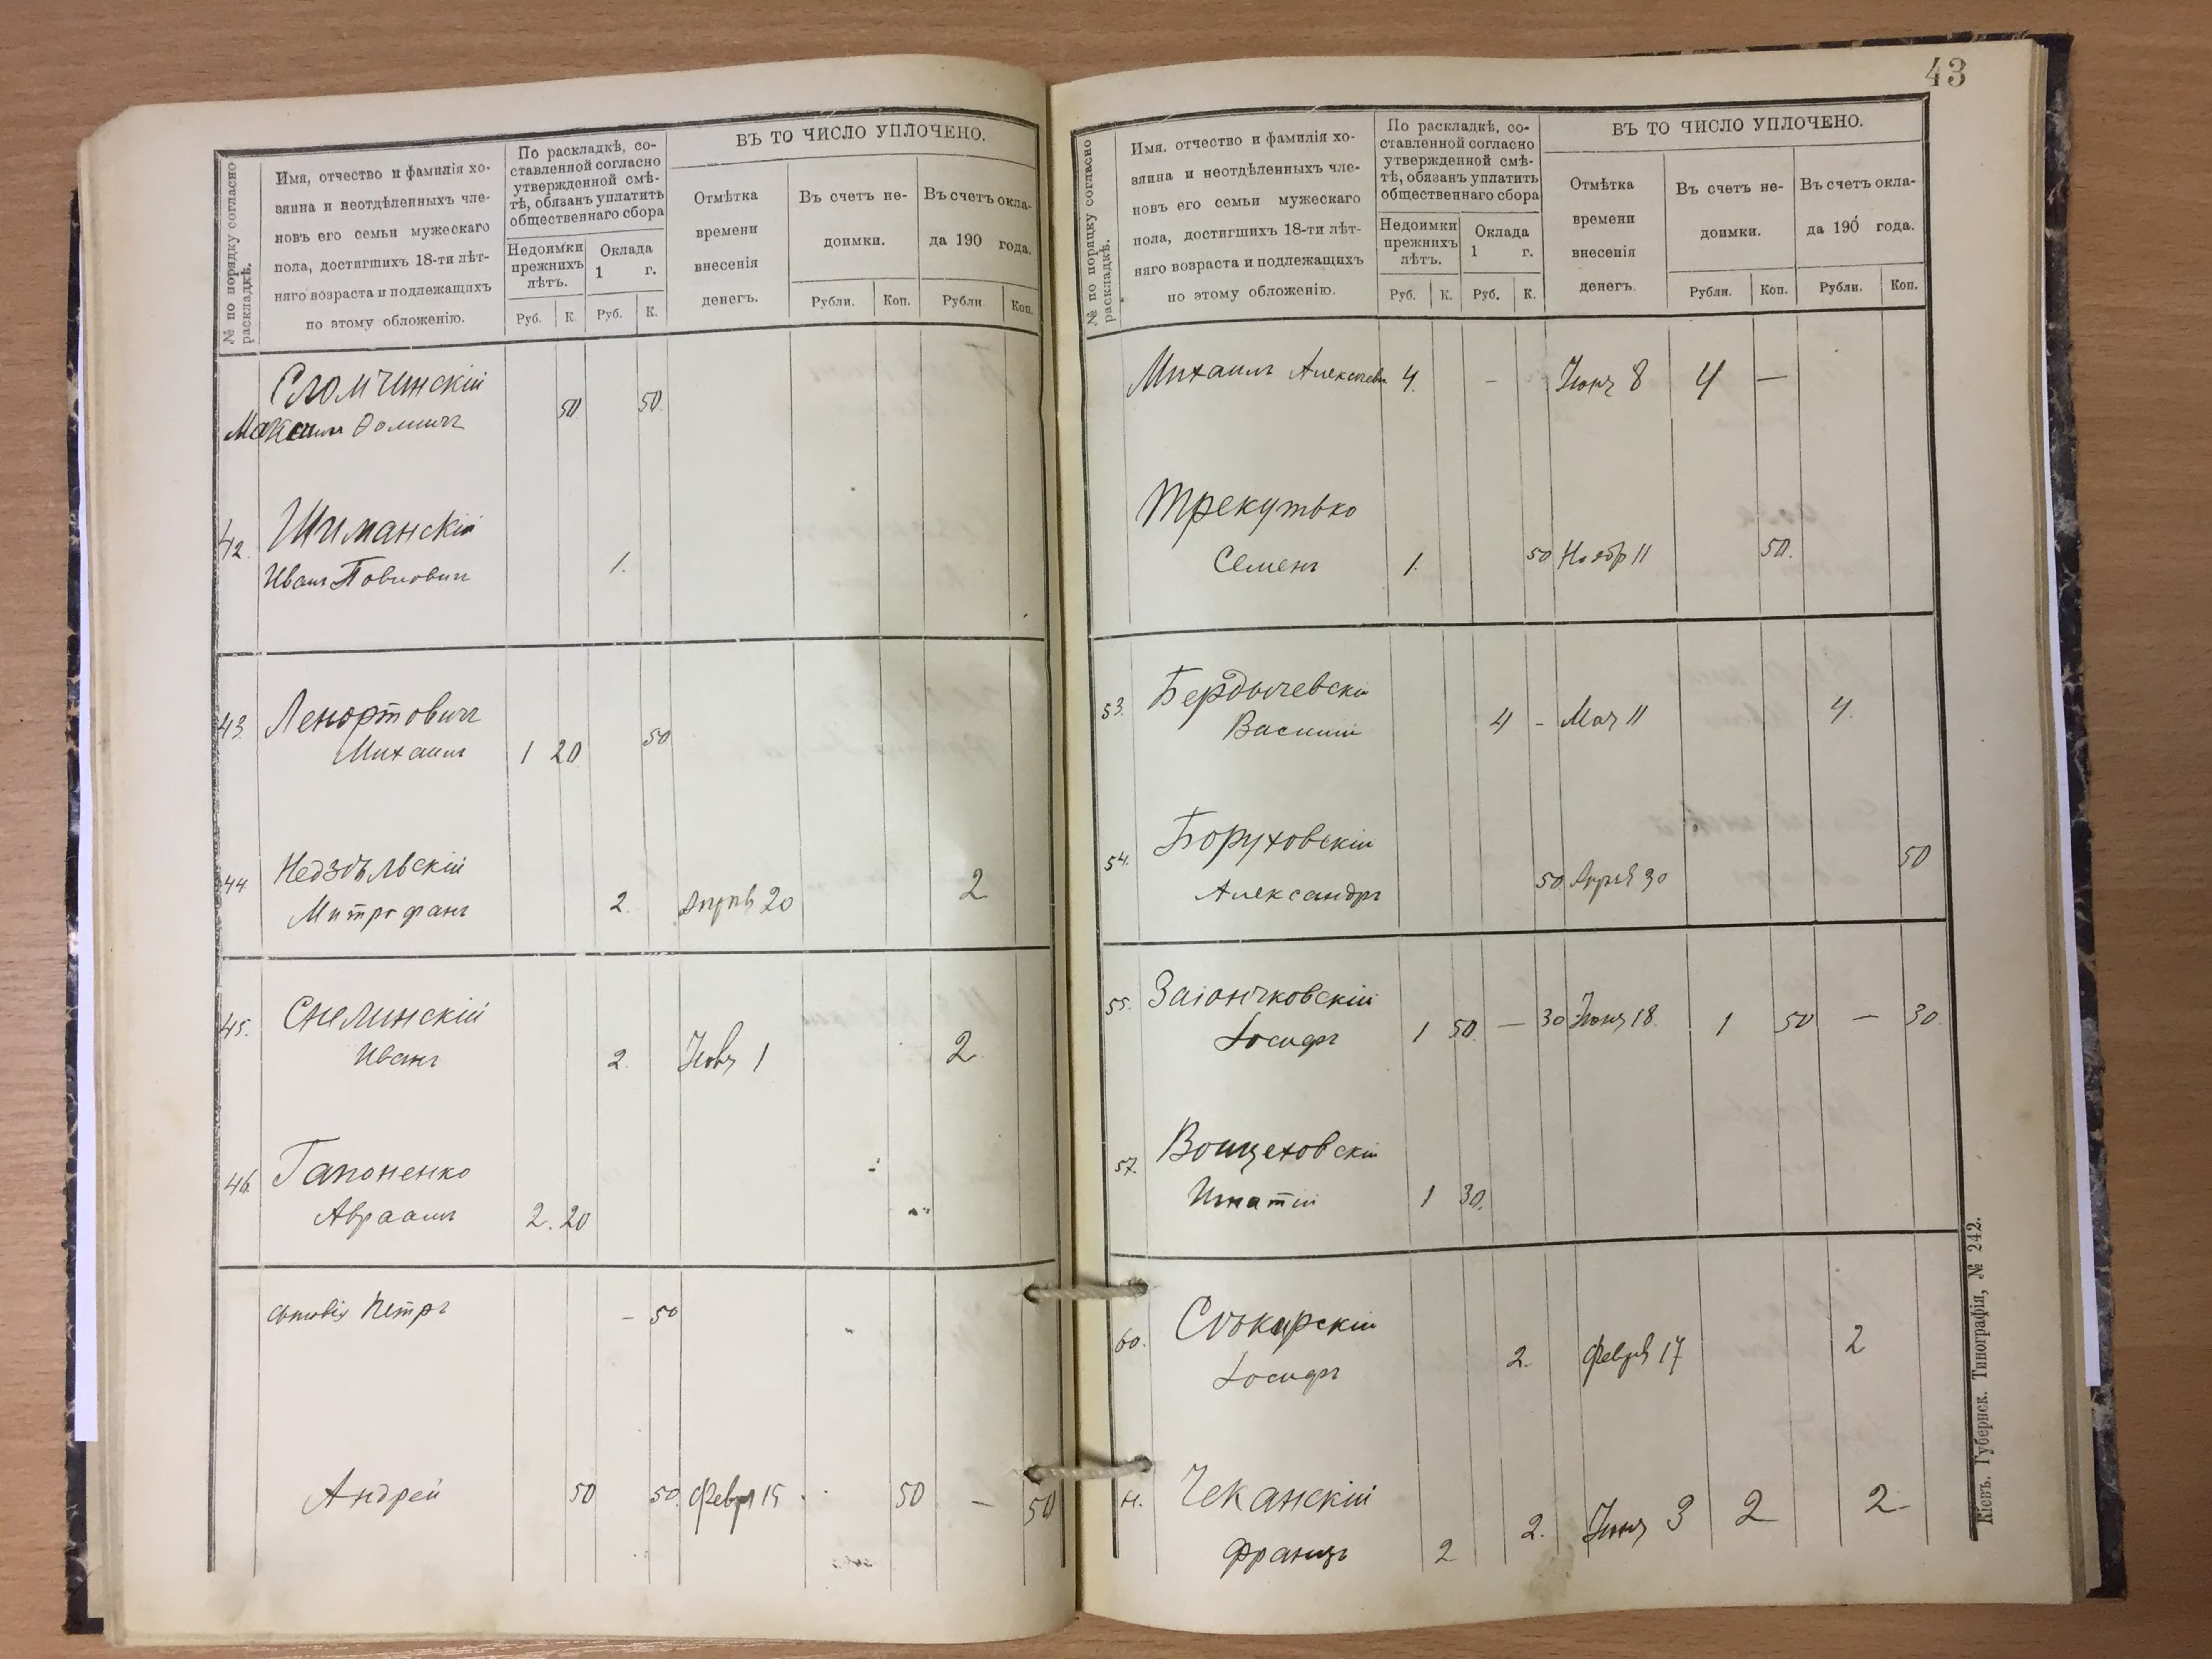 № по порядку согласно раскладкѣ.
Имя, отчество и фамилія хо-
зяина и неотдѣленныхъ чле-
новъ его семьи мужескаго
пола, достигшихъ 18-ти лѣт-
няго возраста и подлежащихъ
по этому обложенію.
По раскладкѣ, со-
ставленной согласно
утвержденной смѣ-
тѣ, обязанъ уплатить
общественнаго сбора
Недоимки прежнихъ лѣтъ.
Оклада 1 г.
Руб. К. Руб. К.
ВЪ ТО ЧИСЛО УПЛОЧЕНО.
Отмѣтка времени внесенія денегъ.
Въ счетъ не-
доимки.
Въ счетъ окла-
да 190 года.
Рубли. Коп. Рубли. Коп.
Сломчинскій
Максимъ Фомичъ 50 50
42. Шиманскій
Иванъ 1.
43. Ленортовичъ
Михаилъ 1 20 50
44. Недзѣльскій
Митрофанъ 2. 20 2
45. Снелинскій
Иванъ 2. 1 2
46. Гапоненко
Авраамъ 2. 20
сыновья Петръ - 50
Андрей 50 50 Февр 15 50 — 50
43
№ по порядку согласно раскладкѣ.
Имя, отчество и фамилія хо-
зяина и неотдѣленныхъ чле-
новъ его семьи мужескаго
пола, достигшихъ 18-ти лѣт-
няго возраста и подлежащихъ
по этому обложенію.
По раскладкѣ, со-
ставленной согласно
утвержденной смѣ-
тѣ, обязанъ уплатить
общественнаго сбора
Недоимки прежнихъ лѣтъ.
Оклада 1 г.
Руб. К. Руб. К.
ВЪ ТО ЧИСЛО УПЛОЧЕНО.
Отмѣтка времени внесенія денегъ.
Въ счетъ не-
доимки.
Въ счетъ окла-
да 190 года.
Рубли. Коп. Рубли. Коп.
Михаилъ 4. - Іюня 8 4 —
Трекутько
Семенъ 1. 50 Ноябр 11 50.
53. Бердычевскій
Василій 4 - Мая 11 4.
54. Боруховскій
Александръ 50 30 50
55. Заіончковскій
Іосифъ 1 50. — 30 Іюня 18 1 50 — 30
57. Войцеховскій
Игнатій 1 30.
60. Сѣкирскій
Іосифъ 2. Февр 17 2
Чеканскій
Францъ 2 2. Іюня 3 2 2
Кіевъ. Губернск. Типографія, № 242.